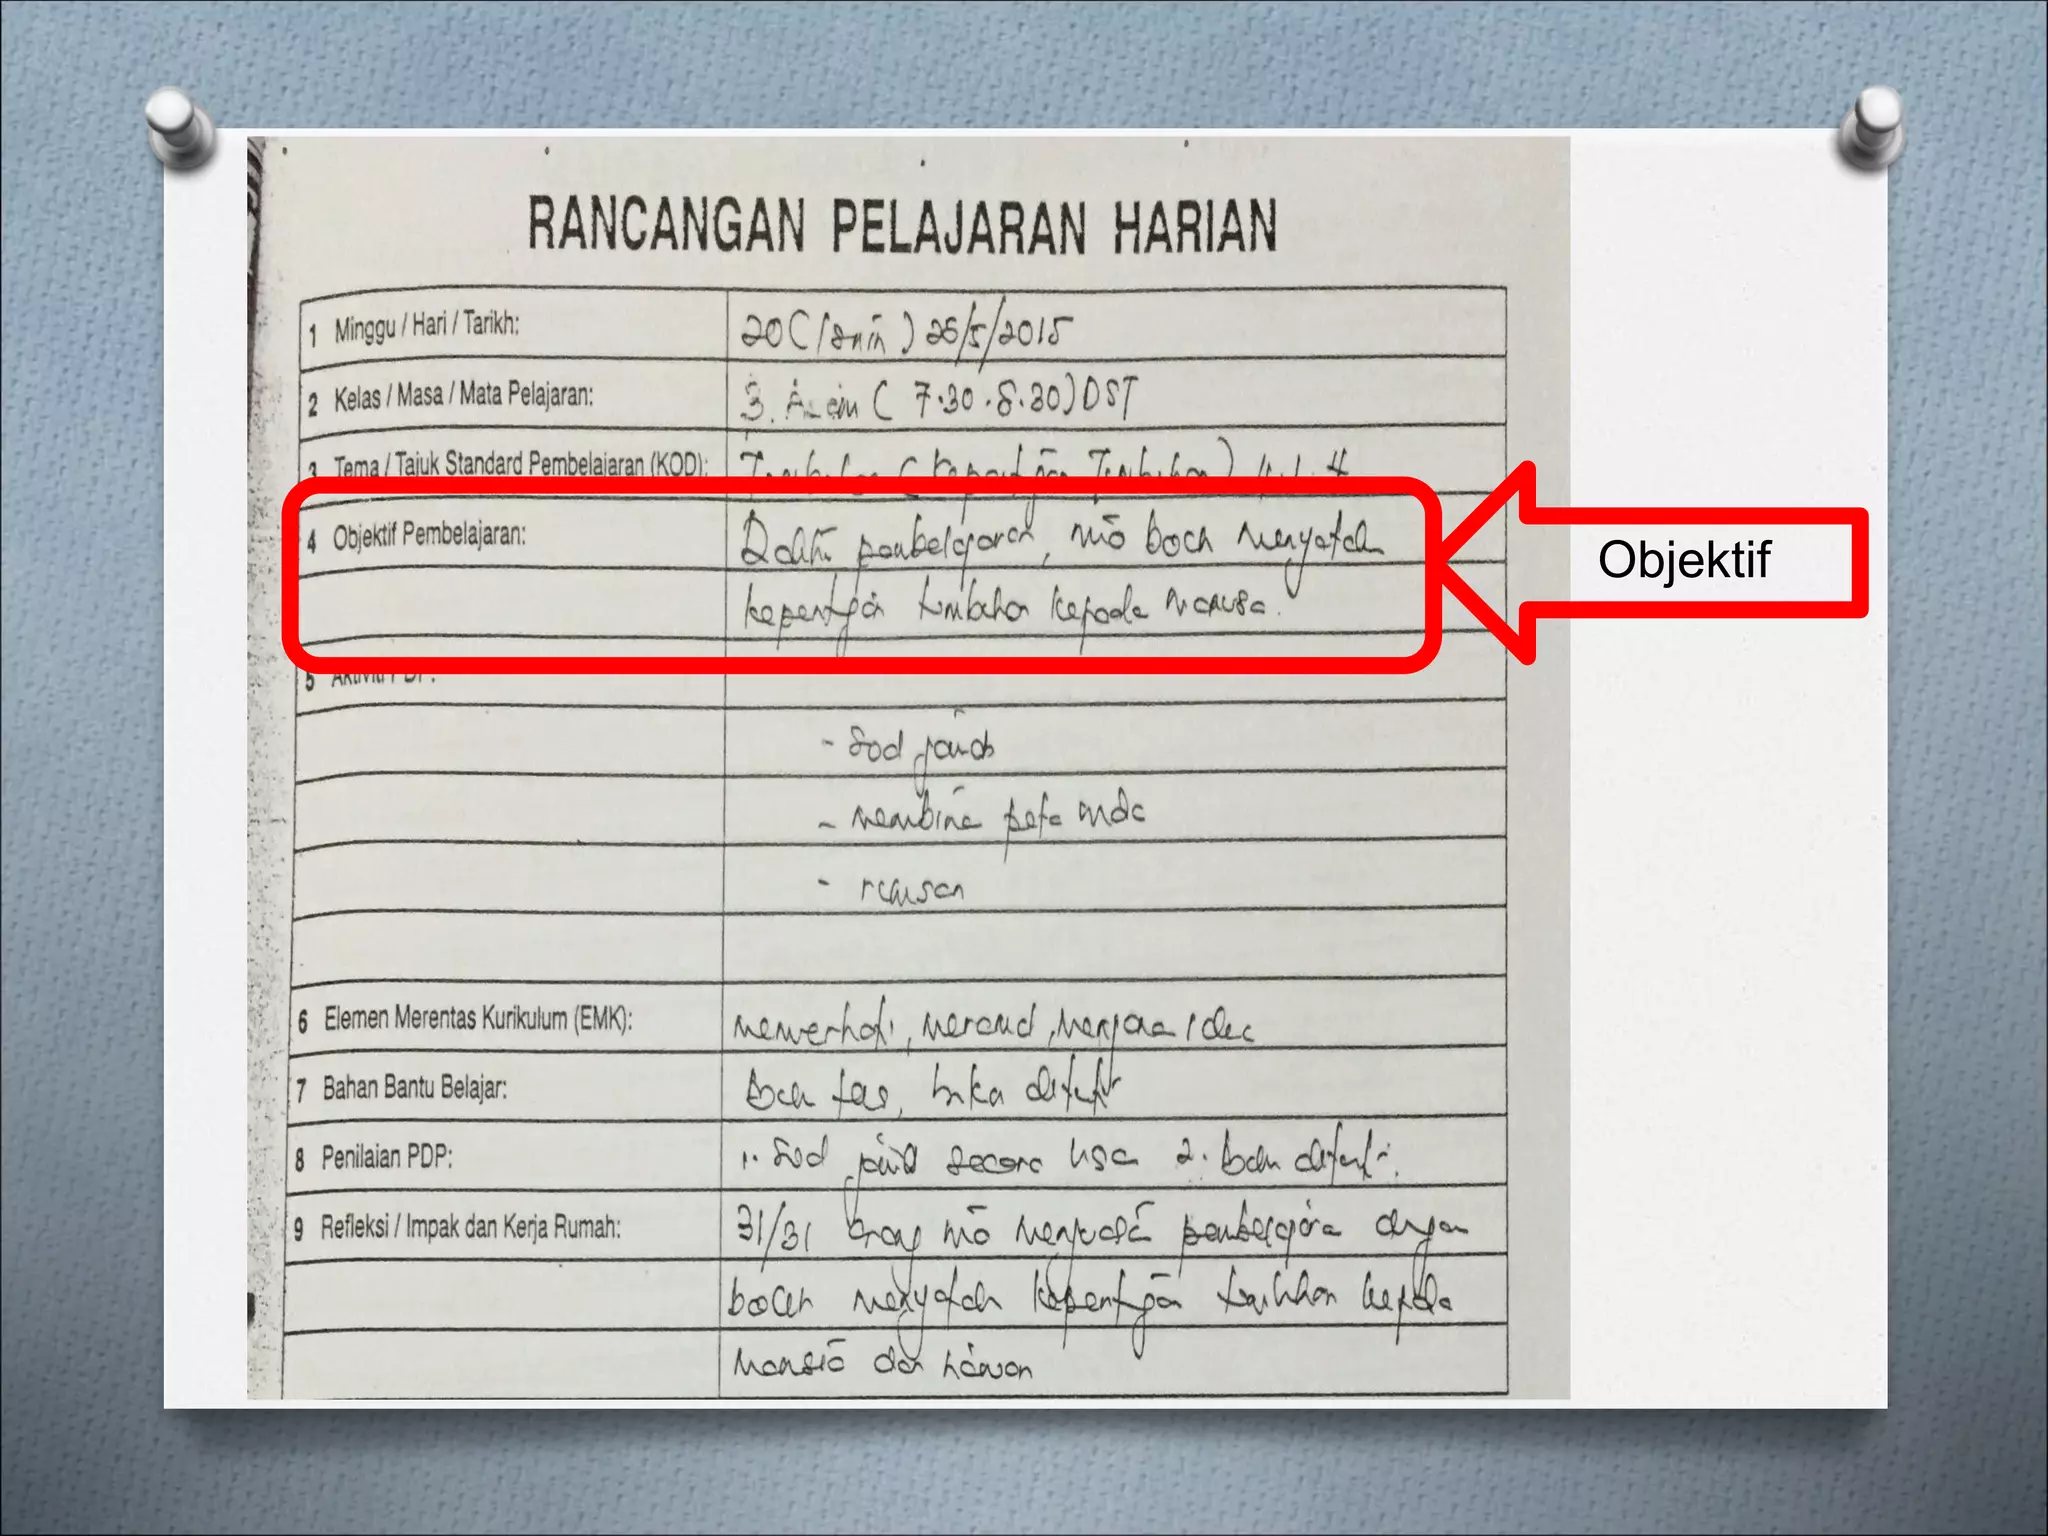 RANCANGAN PELAJARAN HARIAN
1 Minggu / Hari / Tarikh: 20 (Isnin) 25/5/2015
2 Kelas / Masa / Mata Pelajaran: 3 (7.30-8.30) DST
3 Tema / Tajuk Standard Pembelajaran (KOD):
4 Objektif Pembelajaran: pembelajaran, menyatakan
kepentingan tumbuhan kepada manusia.
Objektif
5 Aktiviti PDP:
- Soal jawab
- membina peta minda
- rumusan
6 Elemen Merentas Kurikulum (EMK): menjana idea
7 Bahan Bantu Belajar: buku
8 Penilaian PDP: 1. Soal jawab secara lisan 2.
9 Refleksi / Impak dan Kerja Rumah: 31/31 orang pembelajaran dengan
menyatakan kepentingan tumbuhan kepada
manusia dan haiwan